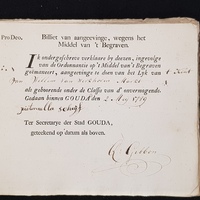 Pro Deo.
Billiet van aangeevinge, wegens het
Middel van 't Begraven.
Ik ondergeschreve verklaare by deezen, ingevolge
van de Ordonnantie op 't Middel van 't Begraven
geëmaneert, aangeevinge te doen van het Lyk van
't Kint
van Willem van
als gehoorende onder de Classis van d' onvermogende.
Gedaan binnen GOUDA, den 2 May 1789
Ter Secretarye der Stad GOUDA,
geteekend op datum als boven.